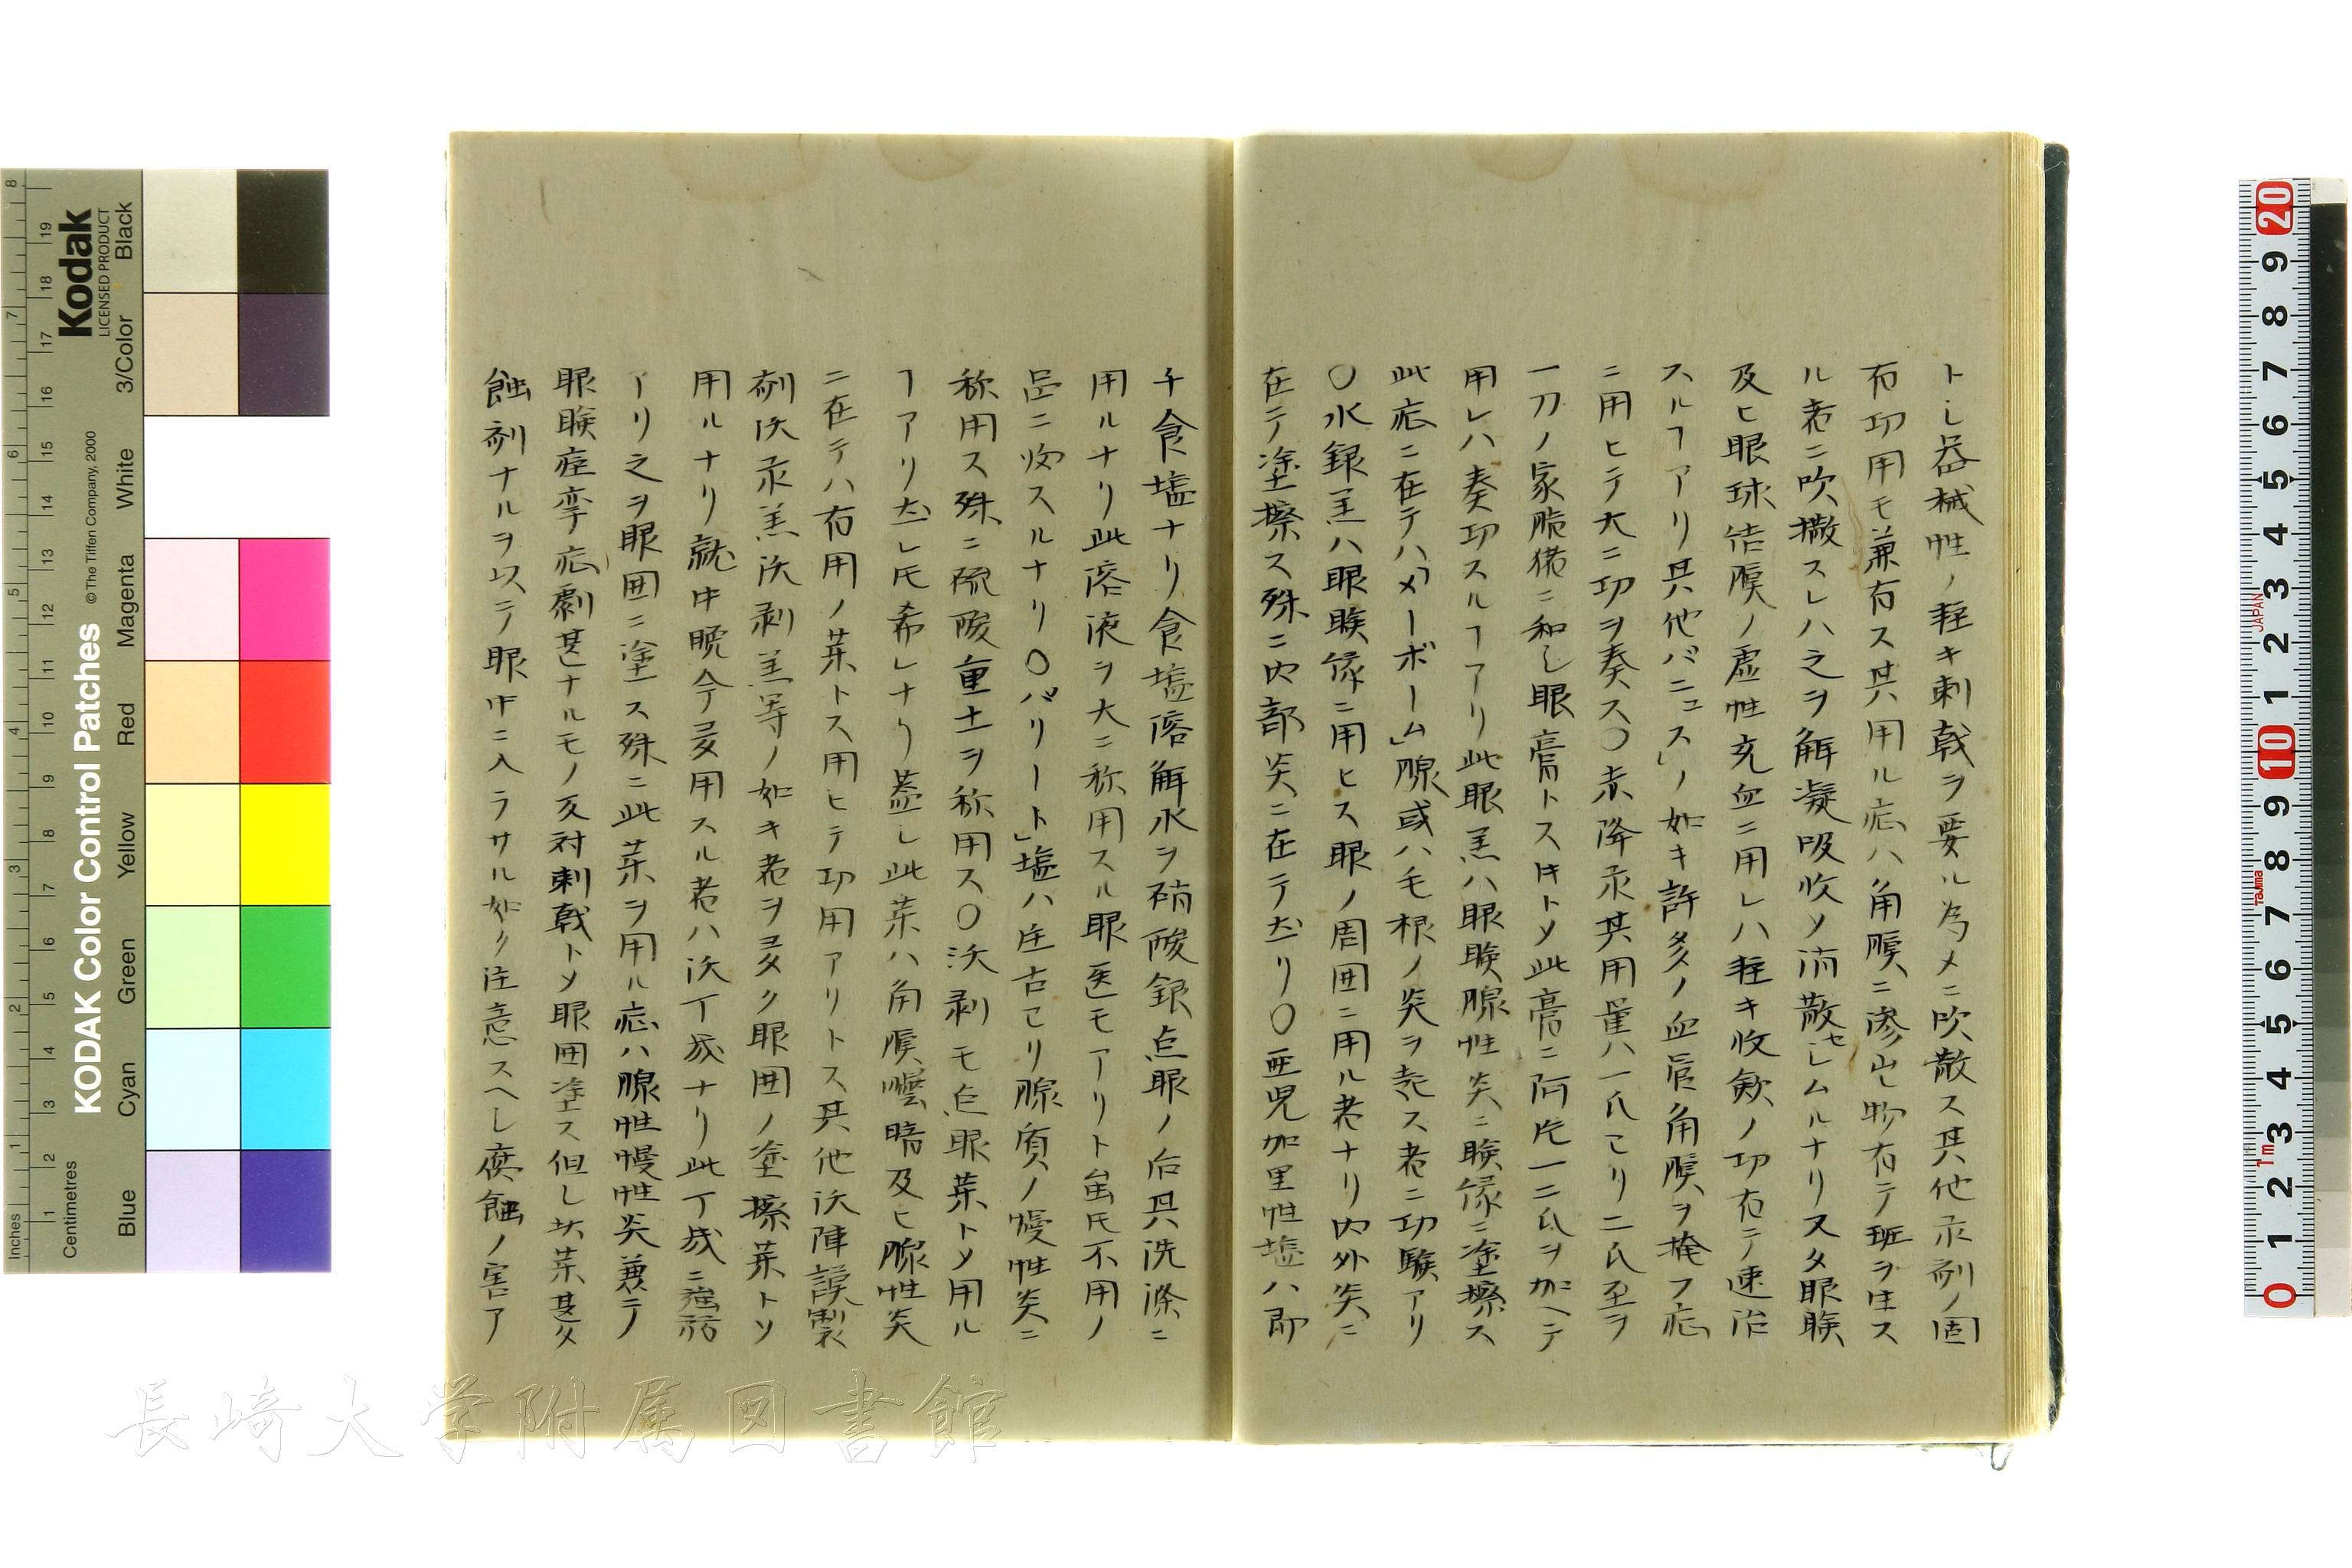 トシ器械性ノ軽キ刺戟ヲ要ル為メニ吹散ス其他汞剤ノ固
有功用モ兼有ス其用ル症ハ角膜ニ滲出物有テ斑ヲ生ス
ル者ニ吹撒スレハ之ヲ解凝吸收ソ消散セシムルナリ又タ眼瞼
及ヒ眼球結膜ノ虚性充血ニ用レハ軽キ收斂ノ功有テ速治
スルヿアリ其他パニュス」ノ如キ許多ノ血管角膜ヲ掩フ症
ニ用ヒテ大ニ功ヲ奏ス〇赤降汞其用量ハ一氏ヨリ二氏至ヲ
一刀ノ家脂猪ニ和シ眼膏トスキトメ此膏ニ阿片一二氏ヲ加ヘテ
用レハ奏功スルヿアリ此眼羔ハ眼瞼腺性炎ニ瞼縁ニ塗擦ス
此症ニ在テハ「メーボーム」腺或ハ毛根ノ炎ヲ兼ス者ニ功験アリ
〇水銀羔ハ眼瞼縁ニ用ヒス眼ノ周囲ニ用ル者ナリ内外炎ニ
在テ塗擦ス殊ニ内部炎ニ在テ尤リ〇亜児加里性塩ハ即
チ食塩ナリ食塩溶解水ヲ硝酸銀点眼ノ后其洗滌ニ
用ルナリ此溶液ヲ大ニ称用スル眼医モアリト虽氏不用ノ
品ニ收スルナリ〇バリート」塩ハ往古ヨリ腺質ノ慢性炎ニ
称用ス殊ニ硫酸重土ヲ称用ス〇沃剥モ点眼薬トメ用ル
ヿアリ尤レ氏希レナリ蓋シ此薬ハ角膜曇暗及ヒ腺性炎
ニ在テハ有用ノ薬トス用ヒテ功用アリトス其他沃陣謨製
剤沃汞羔沃剥羔等ノ如キ者ヲ多ク眼囲ノ塗擦薬トソ
用ルナリ就中晩今多用スル者ハ沃丁幾ナリ此丁幾ニ強弱
アリ之ヲ眼囲ニ塗ス殊ニ此薬ヲ用ル症ハ腺性慢性炎兼テ
眼瞼痙攣症劇甚ナルモノ反対刺戟トメ眼囲塗ス但シ此薬甚タ
蝕剤ナルヲ以テ眼中ニ入ラサル如ク注意スヘシ腐蝕ノ害ア
長崎大学附属図書館
Kodak
LICENSED PRODUCT
KODAK Color Control Patches
© The Tiffen Company, 2000
Inches
Centimetres
Blue
Cyan
Green
Yellow
Red
Magenta
White
3/Color
Black
JAPAN
Tajima
1m